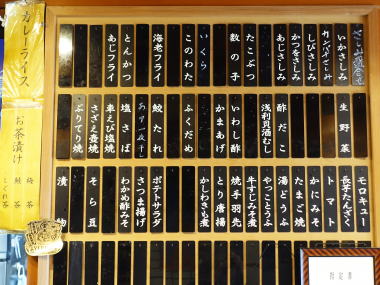 いかさしみ
カンパチさしみ
しびさしみ
かつをさしみ
あじさしみ
たこぶつ
数の子
いくら
このわた
海老フライ
とんかつ
あじフライ
生野菜
酢だこ
浅利酒むし
いわし酢
かまあげ
ふくだめ
鮫たれ
あじ一夜干し
塩さば
車えび塩焼
さざえ壺焼
ぶりてり焼
モロキュー
長芋たんざく
トマト
かにみそ
たまご焼
湯どうふ
やっことうふ
牛すじみそ煮
焼手羽先
とり唐揚
かしわさも煮
ポテトサラダ
さつま揚げ
わかめ酢みそ
そら豆
漬物
カレーライス
お茶漬け
梅茶
鮭茶
しぐれ茶
指定書